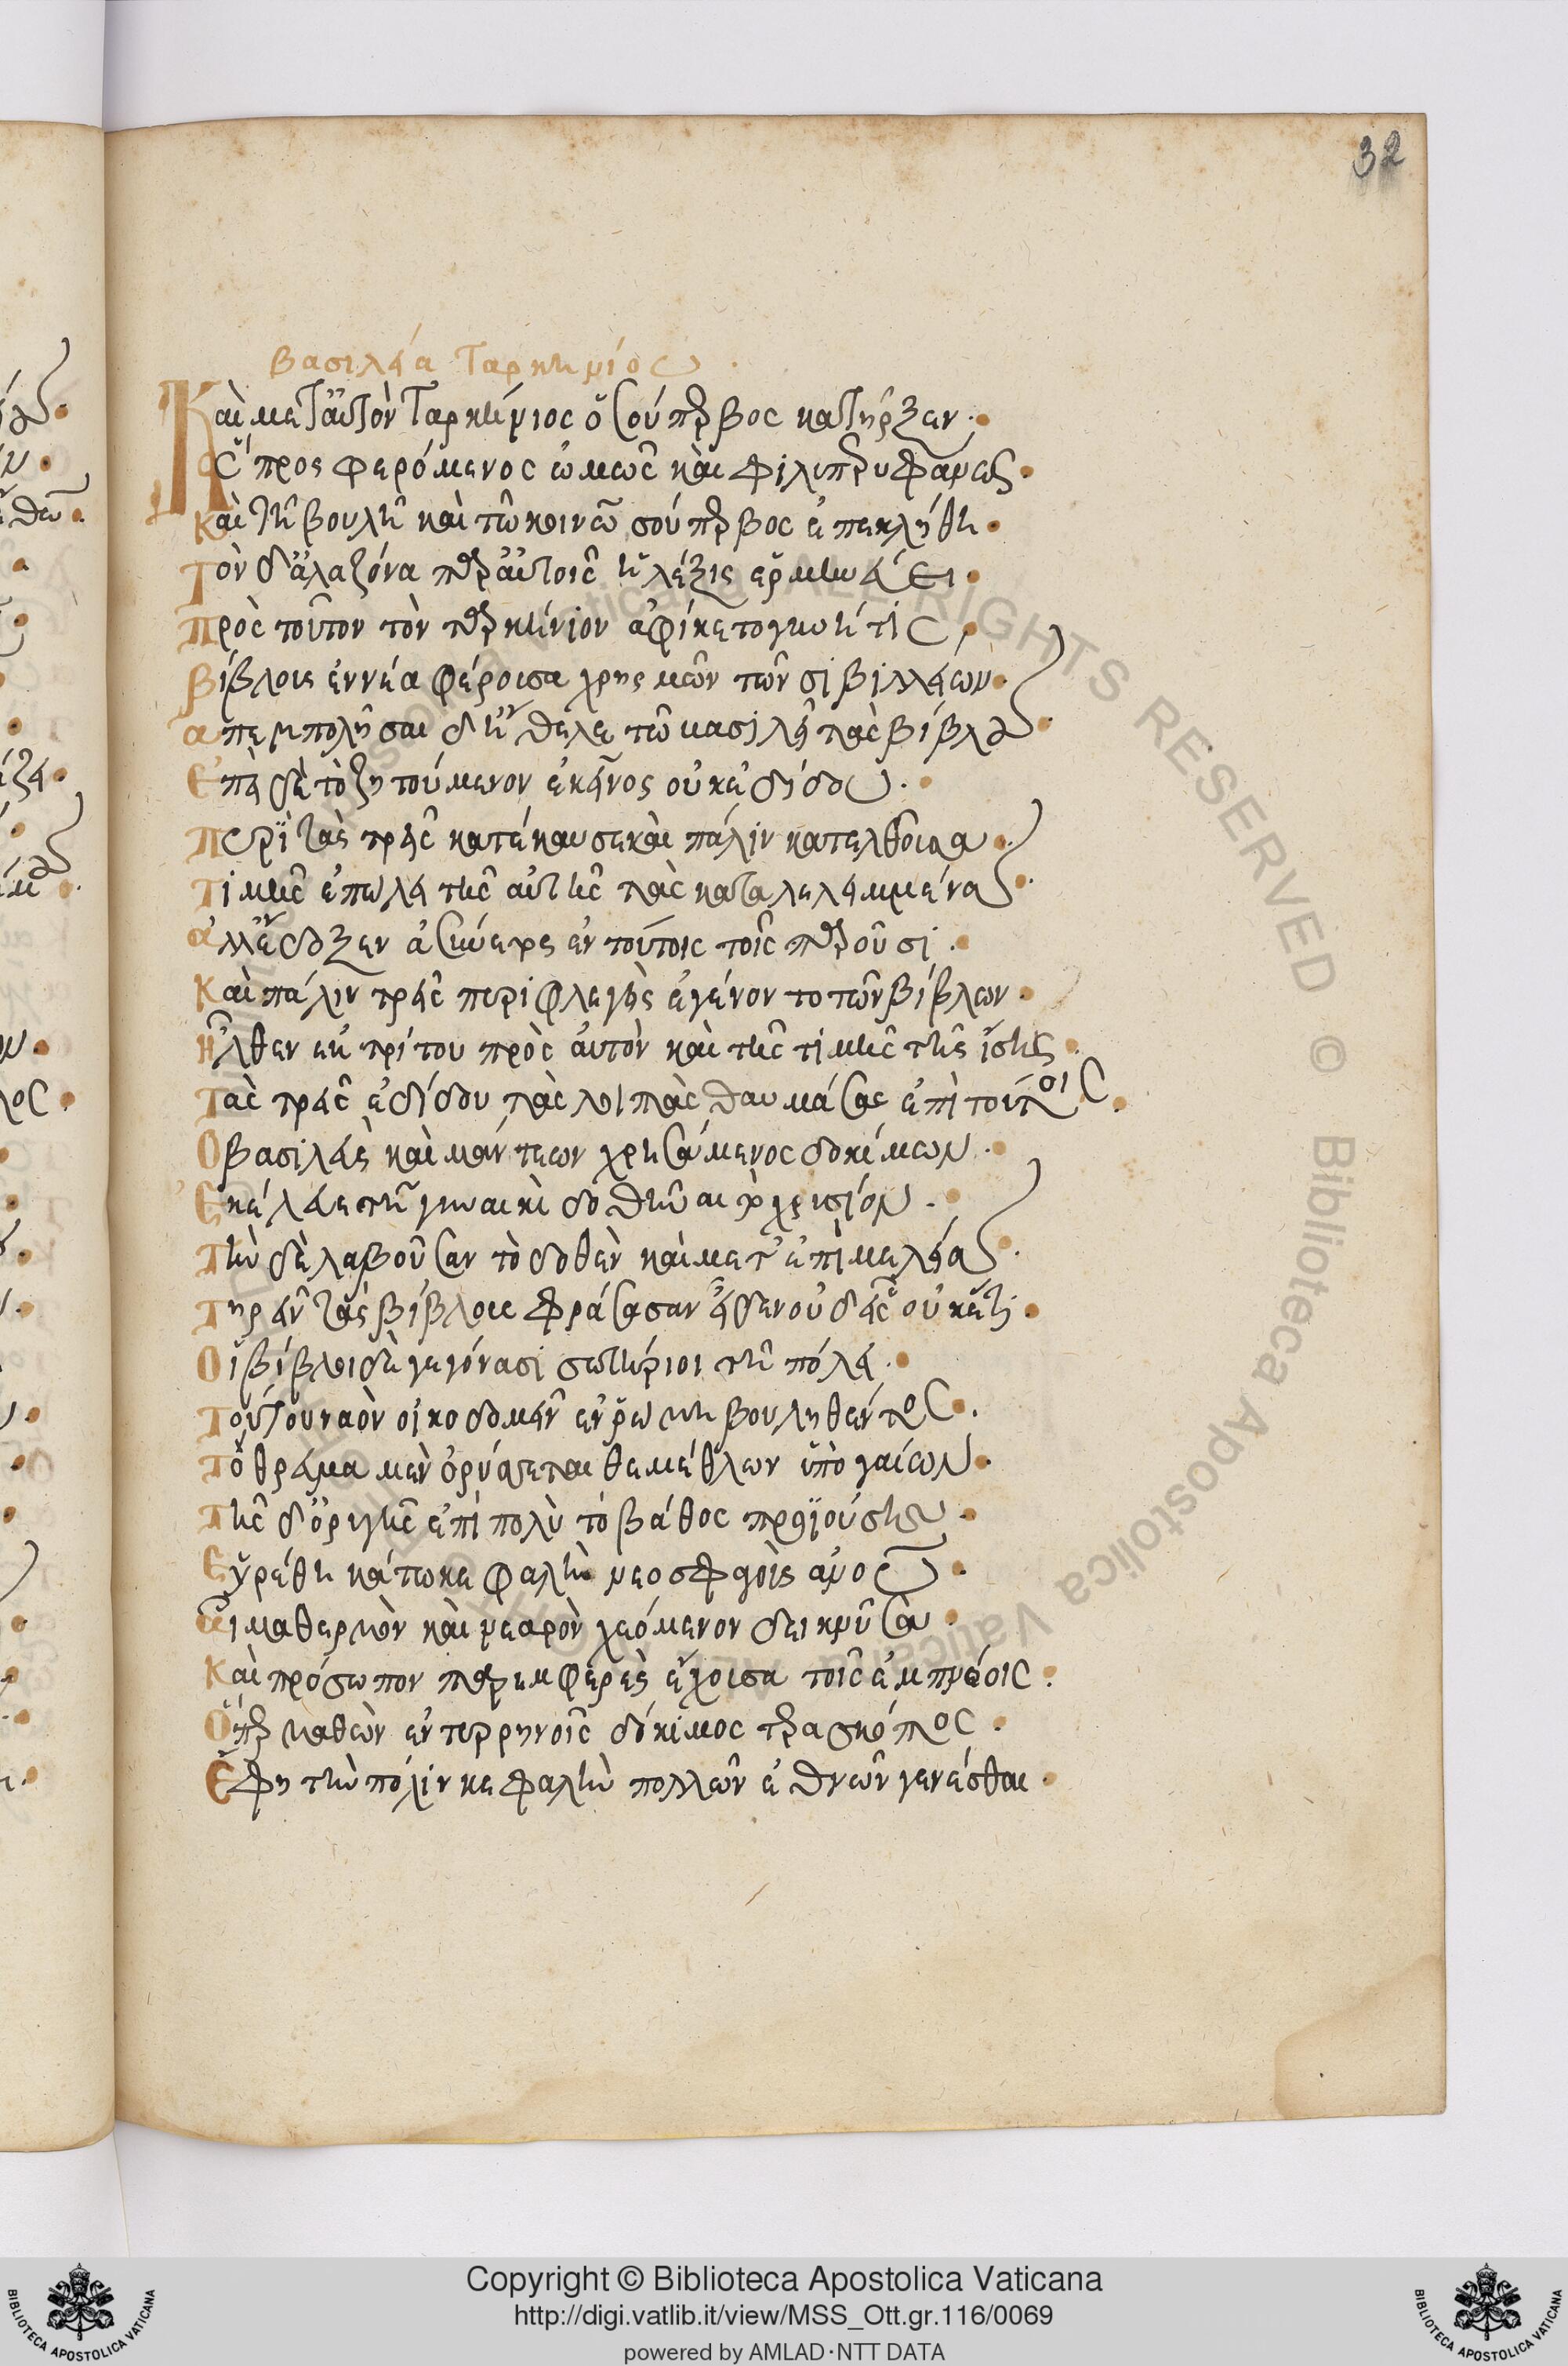 32
βασιλεία Ταρκηνίου.
Καὶ μετ' αὐτὸν Ταρκύνιος ὁ σούπερβος κατῆρξεν·
ὃς προσφερόμενος ὠμῶς καὶ φιλοτυράννως·
Καὶ τῇ βουλῇ καὶ τῷ κοινῷ σούπερβος ἐπεκλήθη·
Τὸν δ' ἀλαζόνα παρ' αὐτοῖς ἡ λέξις ἑρμηνεύει·
Πρὸς τοῦτον τὸν ταρκήνιον ἀφίκετο γυνή τις·
βίβλους ἐννέα φέρουσα χρησμῶν τῶν σιβιλλείων·
ἀπεμπολῆσαι δ' ἤθελε τῷ βασιλεῖ τὰς βίβλους·
Ἐπεὶ δὲ τὸ ζητούμενον ἐκεῖνος οὐκ ἐδίδου.
Πυρὶ τὰς τρεῖς κατέκαυσε καὶ πάλιν κατελθοῦσα·
Τιμῆς ἐπώλει τῆς αὐτῆς τὰς καταλελειμμένας·
ἀλλ' ἔδοξεν ἀσύνετος ἐν τούτοις τοῖς παροῦσι.
Καὶ πάλιν τρεῖς περιφλεγεῖς ἐγένοντο τῶν βίβλων·
Ἦλθεν ἐκ τρίτου πρὸς αὐτὸν καὶ τῆς τιμῆς τῆς ἴσης·
Τὰς τρεῖς ἐδίδου τὰς λοιπὰς θαυμάσας ἐπὶ τούτοις.
Ὁ βασιλεὺς καὶ μάντεων χρησάμενος δοκίμων.
Ἐκέλευε τῇ γυναικὶ δοθῆναι τὸ χρυσίον.
Τὴν δὲ λαβοῦσαν τὸ δοθὲν καὶ μετ' ἐπιμελείας.
Τηρεῖν τὰς βίβλους φράσασαν εἶδεν οὐδεὶς οὐκέτι·
Οἱ βίβλοι δὲ γεγόνασι σωτήριοι τῇ πόλει.
Τούτου ναὸν οἰκοδομεῖν ἐν ῥώμῃ βουληθέντος.
Τὸ θρέμμα μὲν ὀρύσσεται θεμέθλων ὑπογαίων·
Τῆς δ' ὀρυγῆς ἐπὶ πολὺ τὸ βάθος προϊούσης.
Εὑρέθη κάτω κεφαλὴ νεοσφαγοῦς ἀνδρός.
αἷμα θερμὸν καὶ νεαρὸν χεόμενον δεικνῦσα·
Καὶ πρόσωπον παρεμφερὲς ἔχουσα τοῖς ἐμπνέοις·
Ὅπερ μαθὼν ἐν τερρηνοῖς δόκιμος τερασκόπος.
Ἔφη τὴν πόλιν κεφαλὴν πολλῶν ἐθνῶν γενέσθαι·
Copyright © Biblioteca Apostolica Vaticana
http://digi.vatlib.it/view/MSS_Ott.gr.116/0069
powered by AMLAD·NTT DATA